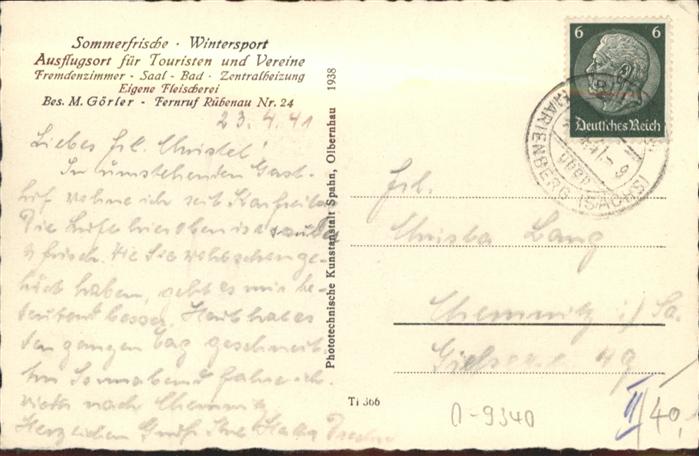 Sommerfrische · Wintersport
Ausflugsort für Touristen und Vereine
Fremdenzimmer - Saal - Bad - Zentralheizung
Eigene Fleischerei
Bes. M. Görler - Fernruf Rübenau Nr. 24
23.4.41
Liebes Frl. Christel!
Im umstehenden Gast-
hof wohne ich seit Karfreitag
Die Luft hier oben ist sauber
u frisch. Wie Sie wohl schon ge-
hört haben, geht es mir be-
deutend besser. Heute hat es
den ganzen Tag geschneit.
Am Sonnabend fahre ich
nach Chemnitz
Herzlichen Gruß Ihre
Phototechnische Kunstanstalt Spahn, Olbernhau 1938
6 6
Deutsches Reich
MARIENBERG (SACHS)
Frl.
Christa Lang
Chemnitz i/Sa.
49
Ti 366
0-9340
II/40,